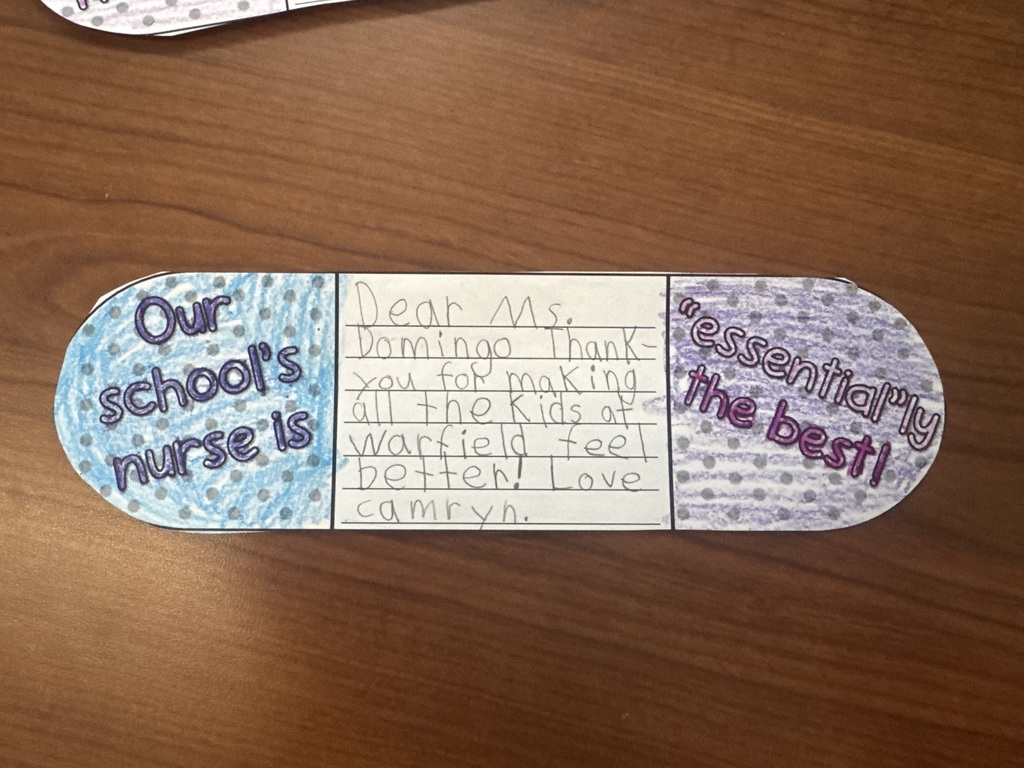 Our
school's
nurse is
Dear Ms.
Domingo Thank-
you for making
all the kids at
Warfield feel
better! Love
camryn.
"essential"ly
the best!